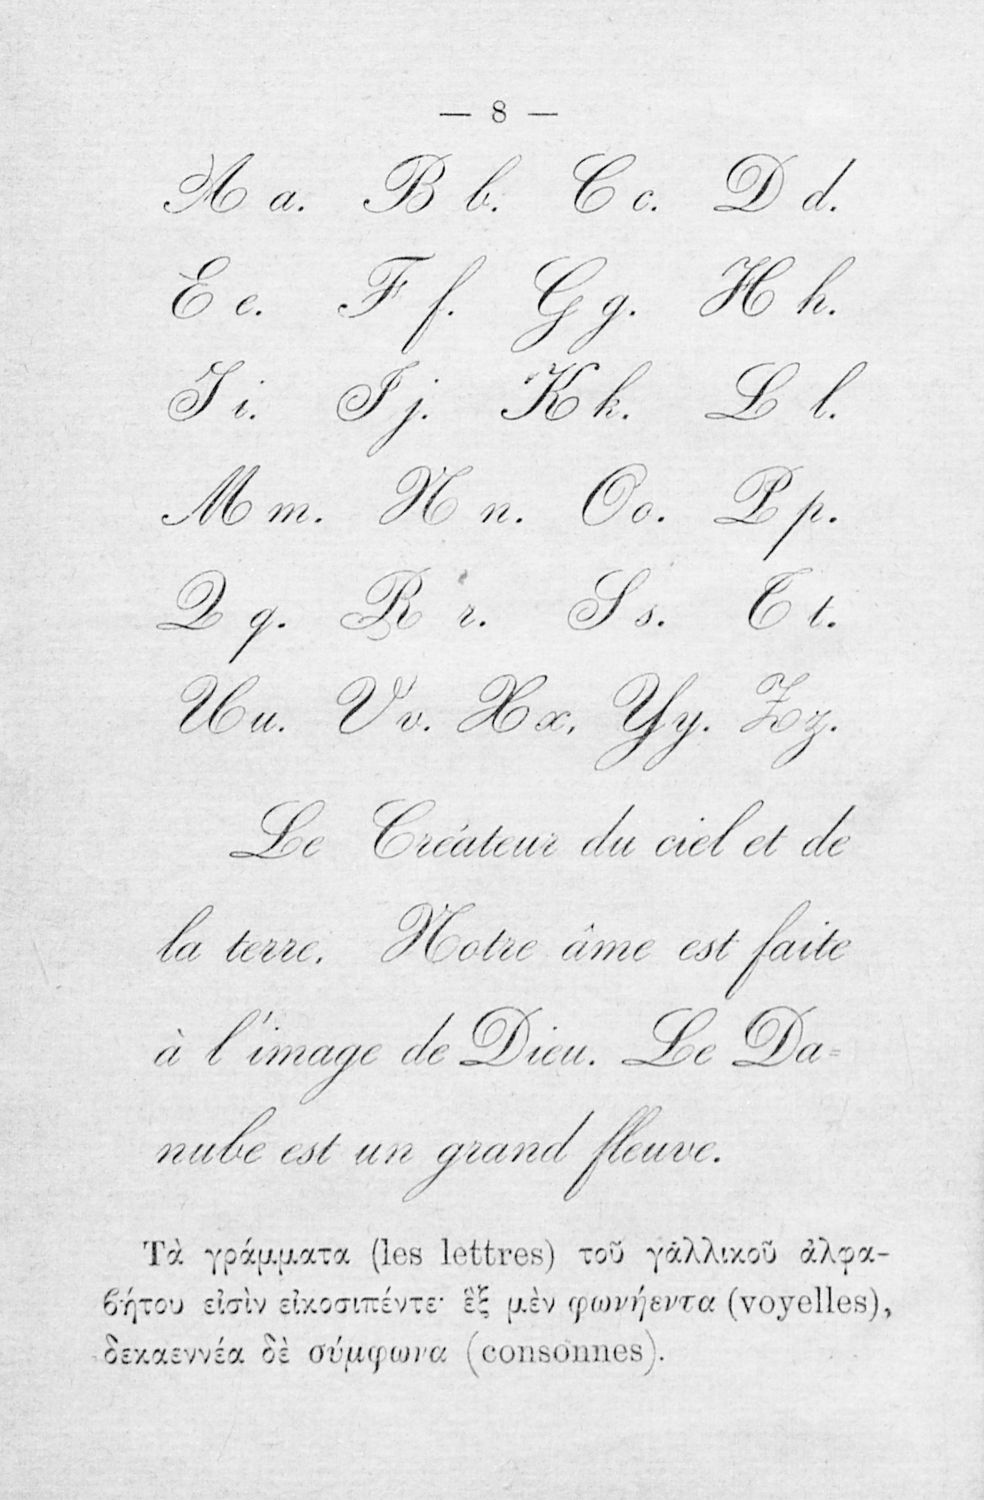 — 8 —
A a. B b. C c. D d.
E e. F f. G g. H h.
I i. J j. K k. L l.
M m. N n. O o. P p.
Q q. R r. S s. T t.
U u. V v. X x. Y y. Z z.
Le Créateur du ciel et de
la terre. Notre âme est faite
à l'image de Dieu. Le Da-
nube est un grand fleuve.
Τὰ γράμματα (les lettres) τοῦ γαλλικοῦ ἀλφα-
βήτου εἰσὶν εἰκοσιπέντε· ἓξ μὲν φωνήεντα (voyelles),
δεκαεννέα δὲ σύμφωνα (consonnes).